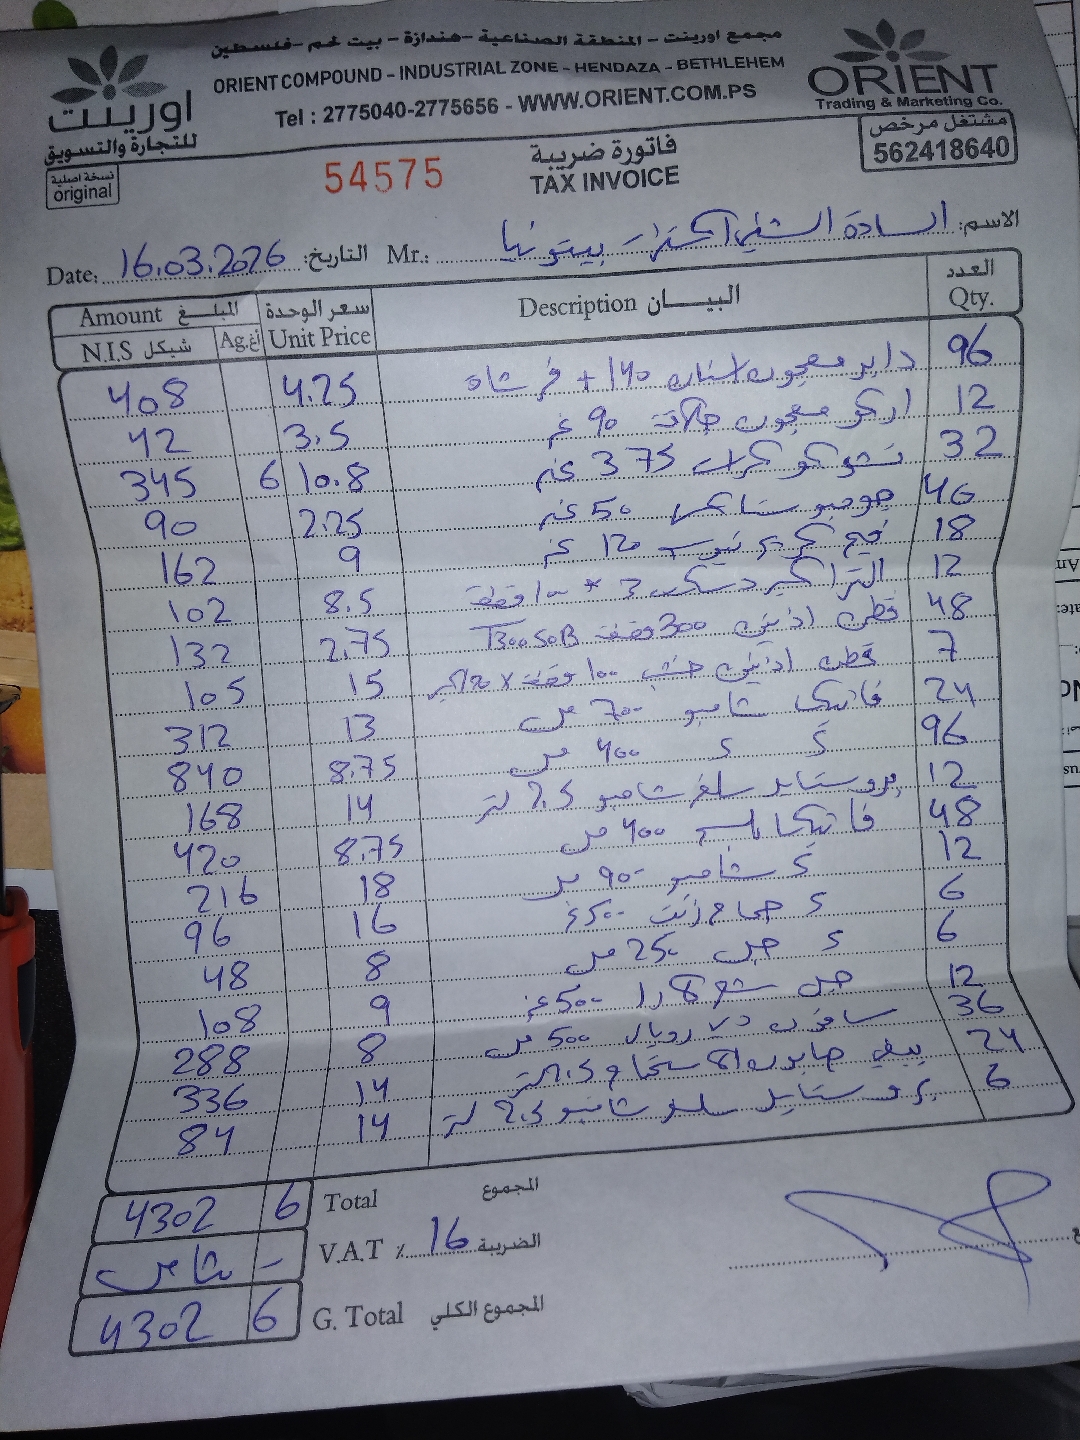 مجمع اورينت - المنطقة الصناعية - هندازة - بيت لحم - فلسطين
ORIENT COMPOUND - INDUSTRIAL ZONE - HENDAZA - BETHLEHEM
Tel : 2775040-2775656 - WWW.ORIENT.COM.PS
اورينت
للتجارة والتسويق
ORIENT
Trading & Marketing Co.
نسخة اصلية
original
54575
فاتورة ضريبة
TAX INVOICE
مشتغل مرخص
562418640
Date: 16.03.2026 التاريخ: Mr.: السادة بيتونيا الاسم:
Amount المبلغ سعر الوحدة البيـــان Description العدد
N.I.S شيكل Ag. أغ Unit Price Qty.
408 4.25 دابر معجون اسنان 140 + فرشاة 96
42 3.5 اركو معجون حلاقة 90 غم 12
345 6 10.8 375 غم 32
90 2.25 50 غم 40
162 9 120 غم 18
102 8.5 3 * 100 قطعة 12
132 2.75 قطن اذنين 300 قطعة T300SOB 48
105 15 قطن اذنين خشب 100 قطعة 7
312 13 فاتيكا شامبو 700 مل 24
840 8.75 ¢ ¢ 400 مل 96
168 14 شامبو 2.5 لتر 12
420 8.75 فاتيكا بلسم 400 مل 48
216 18 ¢ شامبو 900 مل 12
96 16 ¢ حمام زيت 500 غ 6
48 8 ¢ جل 250 مل 6
108 9 جل شعر 500 غم 12
288 8 رويال 500 مل 36
336 14 صابون 24
84 14 شامبو 2.5 لتر 6
4302 6 Total المجموع
شامل - V.A.T ٪ 16 الضريبة
4302 6 G. Total المجموع الكلي